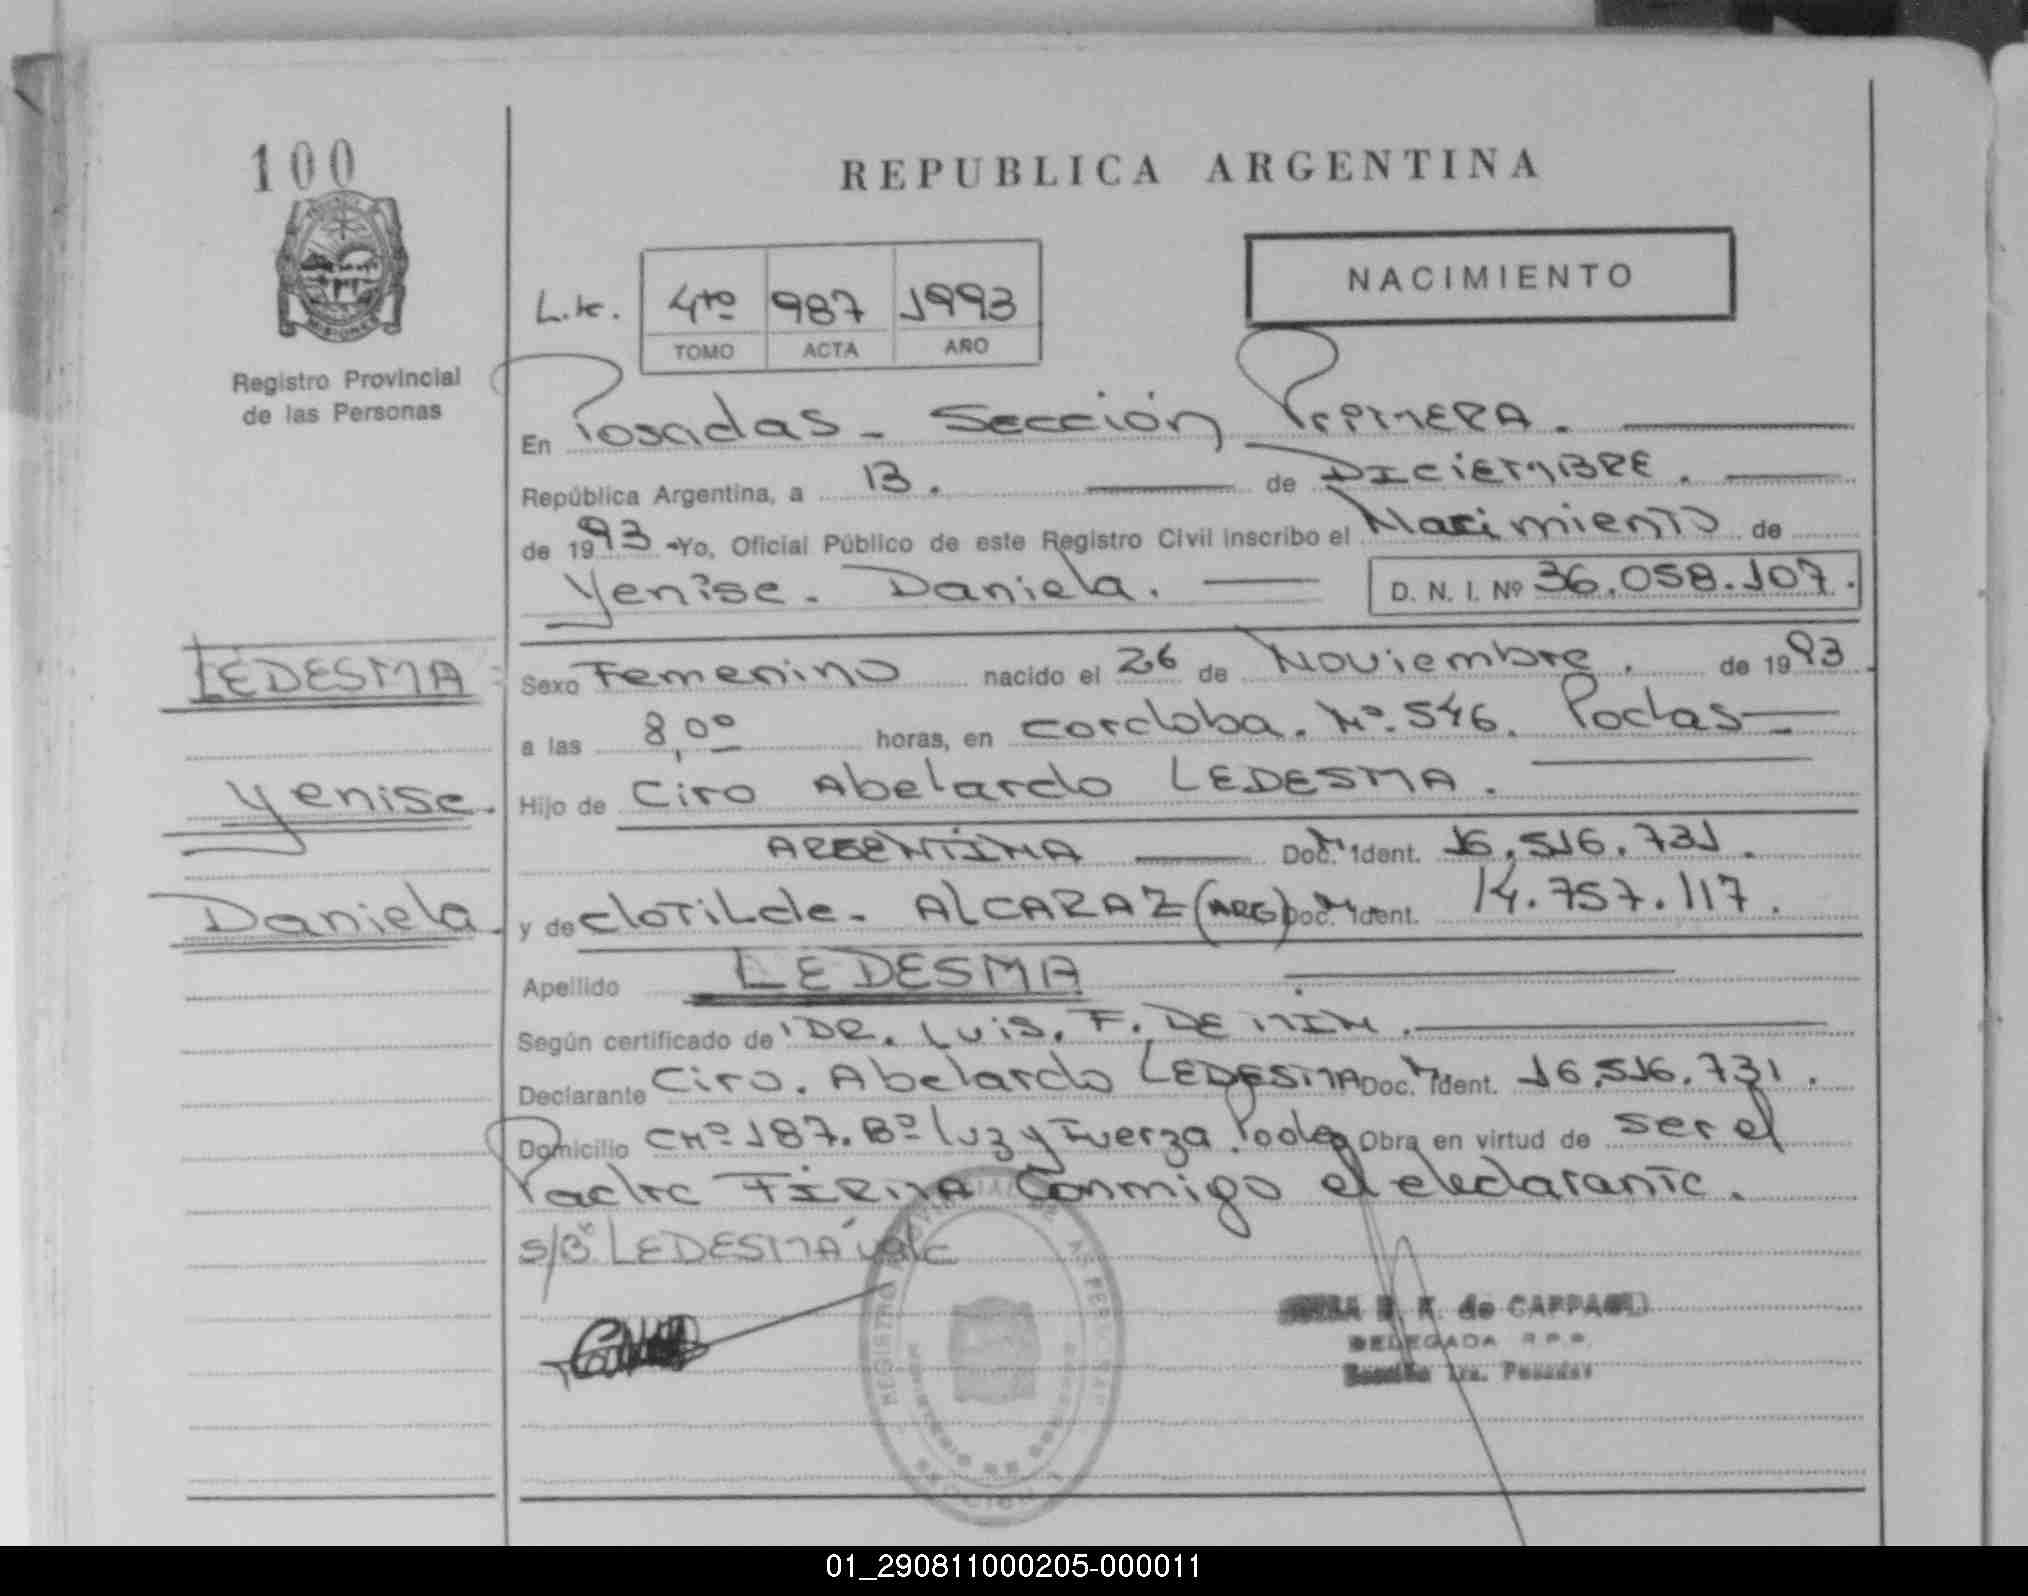 100
REPUBLICA ARGENTINA
NACIMIENTO
4to 987 1993
TOMO ACTA AÑO
Registro Provincial
de las Personas
En Posadas - Sección Primera.
República Argentina, a 13. de DICIEMBRE.
de 1993 - Yo, Oficial Público de este Registro Civil inscribo el Nacimiento de
Yenise. Daniela. D. N. I. Nº 36.058.107.
LEDESMA
Yenise.
Daniela
Sexo Femenino nacido el 26 de Noviembre. de 1993
a las 8,00 horas, en cordoba. Nº 546. Podas
Hijo de Ciro Abelardo LEDESMA.
ARGENTINA Doc. Ident. 16.516.731.
y de cloTiLde. ALCARAZ (ARG) Doc. Ident. 14.757.117.
Apellido LEDESMA
Según certificado de DR. Luis. F.
Declarante Ciro. Abelardo LEDESMA Doc. Ident. 16.516.731.
Domicilio CHº 187. Bº luz y Fuerza. Obra en virtud de ser el
Padre FIRMA Conmigo el declarante.
s/Bº LEDESMA vale
de CAPPA
DELEGADA R.P.P.
Sección 1ra. Posadas
01_290811000205-000011